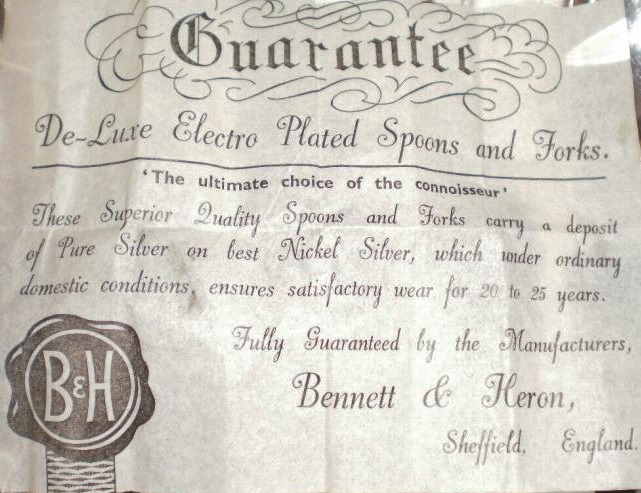 Guarantee
De-Luxe Electro Plated Spoons and Forks.
'The ultimate choice of the connoisseur'
These Superior Quality Spoons and Forks carry a deposit
of Pure Silver on best Nickel Silver, which under ordinary
domestic conditions, ensures satisfactory wear for 20 to 25 years.
Fully Guaranteed by the Manufacturers,
Bennett & Heron,
Sheffield, England.
B&H